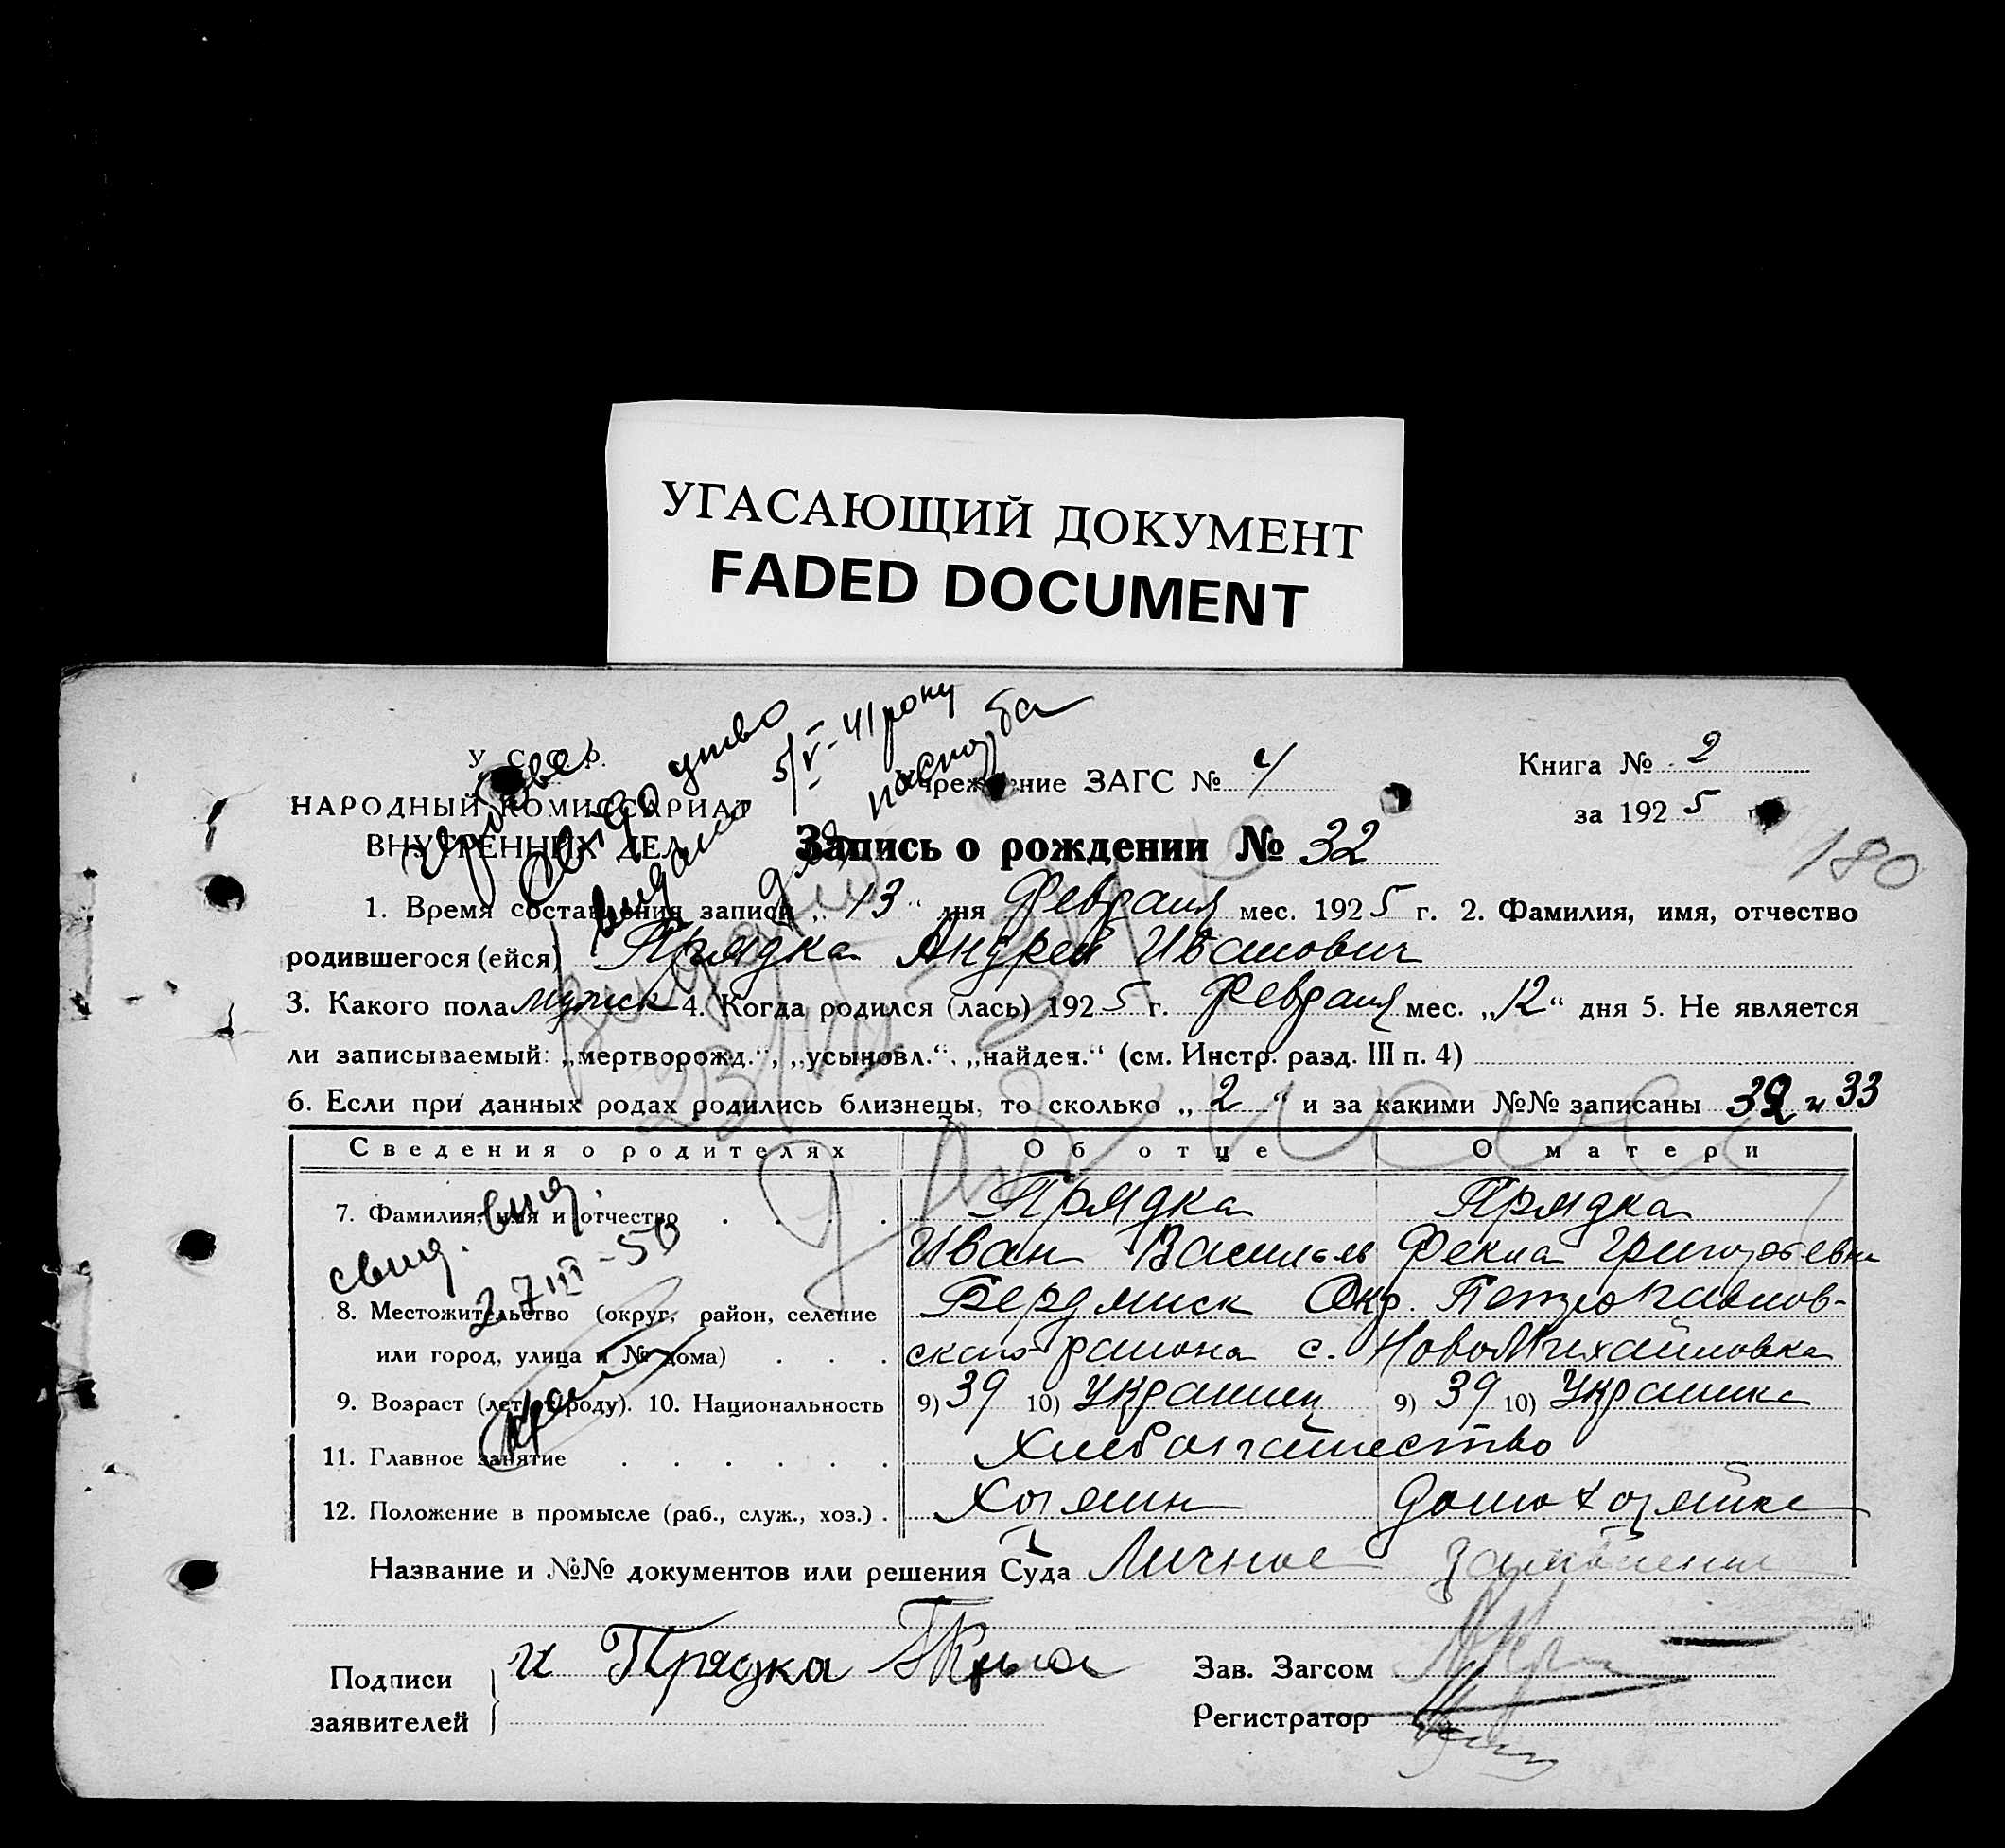 УГАСАЮЩИЙ ДОКУМЕНТ
FADED DOCUMENT
У. С. С. Р.
НАРОДНЫЙ КОМИССАРИАТ
ВНУТРЕННИХ ДЕЛ
видано 5/V-41 року
для паспорта
Учреждение ЗАГС № 4
Книга № 2
за 1925 г.
180
Запись о рождении № 32
1. Время составления записи „13“ дня Февраля мес. 1925 г. 2. Фамилия, имя, отчество
родившегося (ейся) Прядка Андрей Иванович
3. Какого пола мужск 4. Когда родился (лась) 1925 г. Февраля мес. „12“ дня 5. Не является
ли записываемый: „мертворожд.“, „усыновл.“, „найден.“ (см. Инстр. разд. III п. 4)
6. Если при данных родах родились близнецы, то сколько „2“ и за какими №№ записаны 32 и 33
Сведения о родителях Об отце О матери
7. Фамилия, имя и отчество Прядка Прядка
Иван Васильев Фекла Григорьевна
свид. вид.
27 III-50
8. Местожительство (округ, район, селение Бердянск Окр. Петропавлов-
или город, улица и № дома) ского района с. НовоМихайловка
9. Возраст (лет, году). 10. Национальность 9) 39 10) Украинец 9) 39 10) Украинка
11. Главное занятие Хлебопашество
12. Положение в промысле (раб., служ., хоз.) Хозяин домохозяйка
Название и №№ документов или решения Суда Личное заявление
Подписи
заявителей
и Прядка
Зав. Загсом
Регистратор